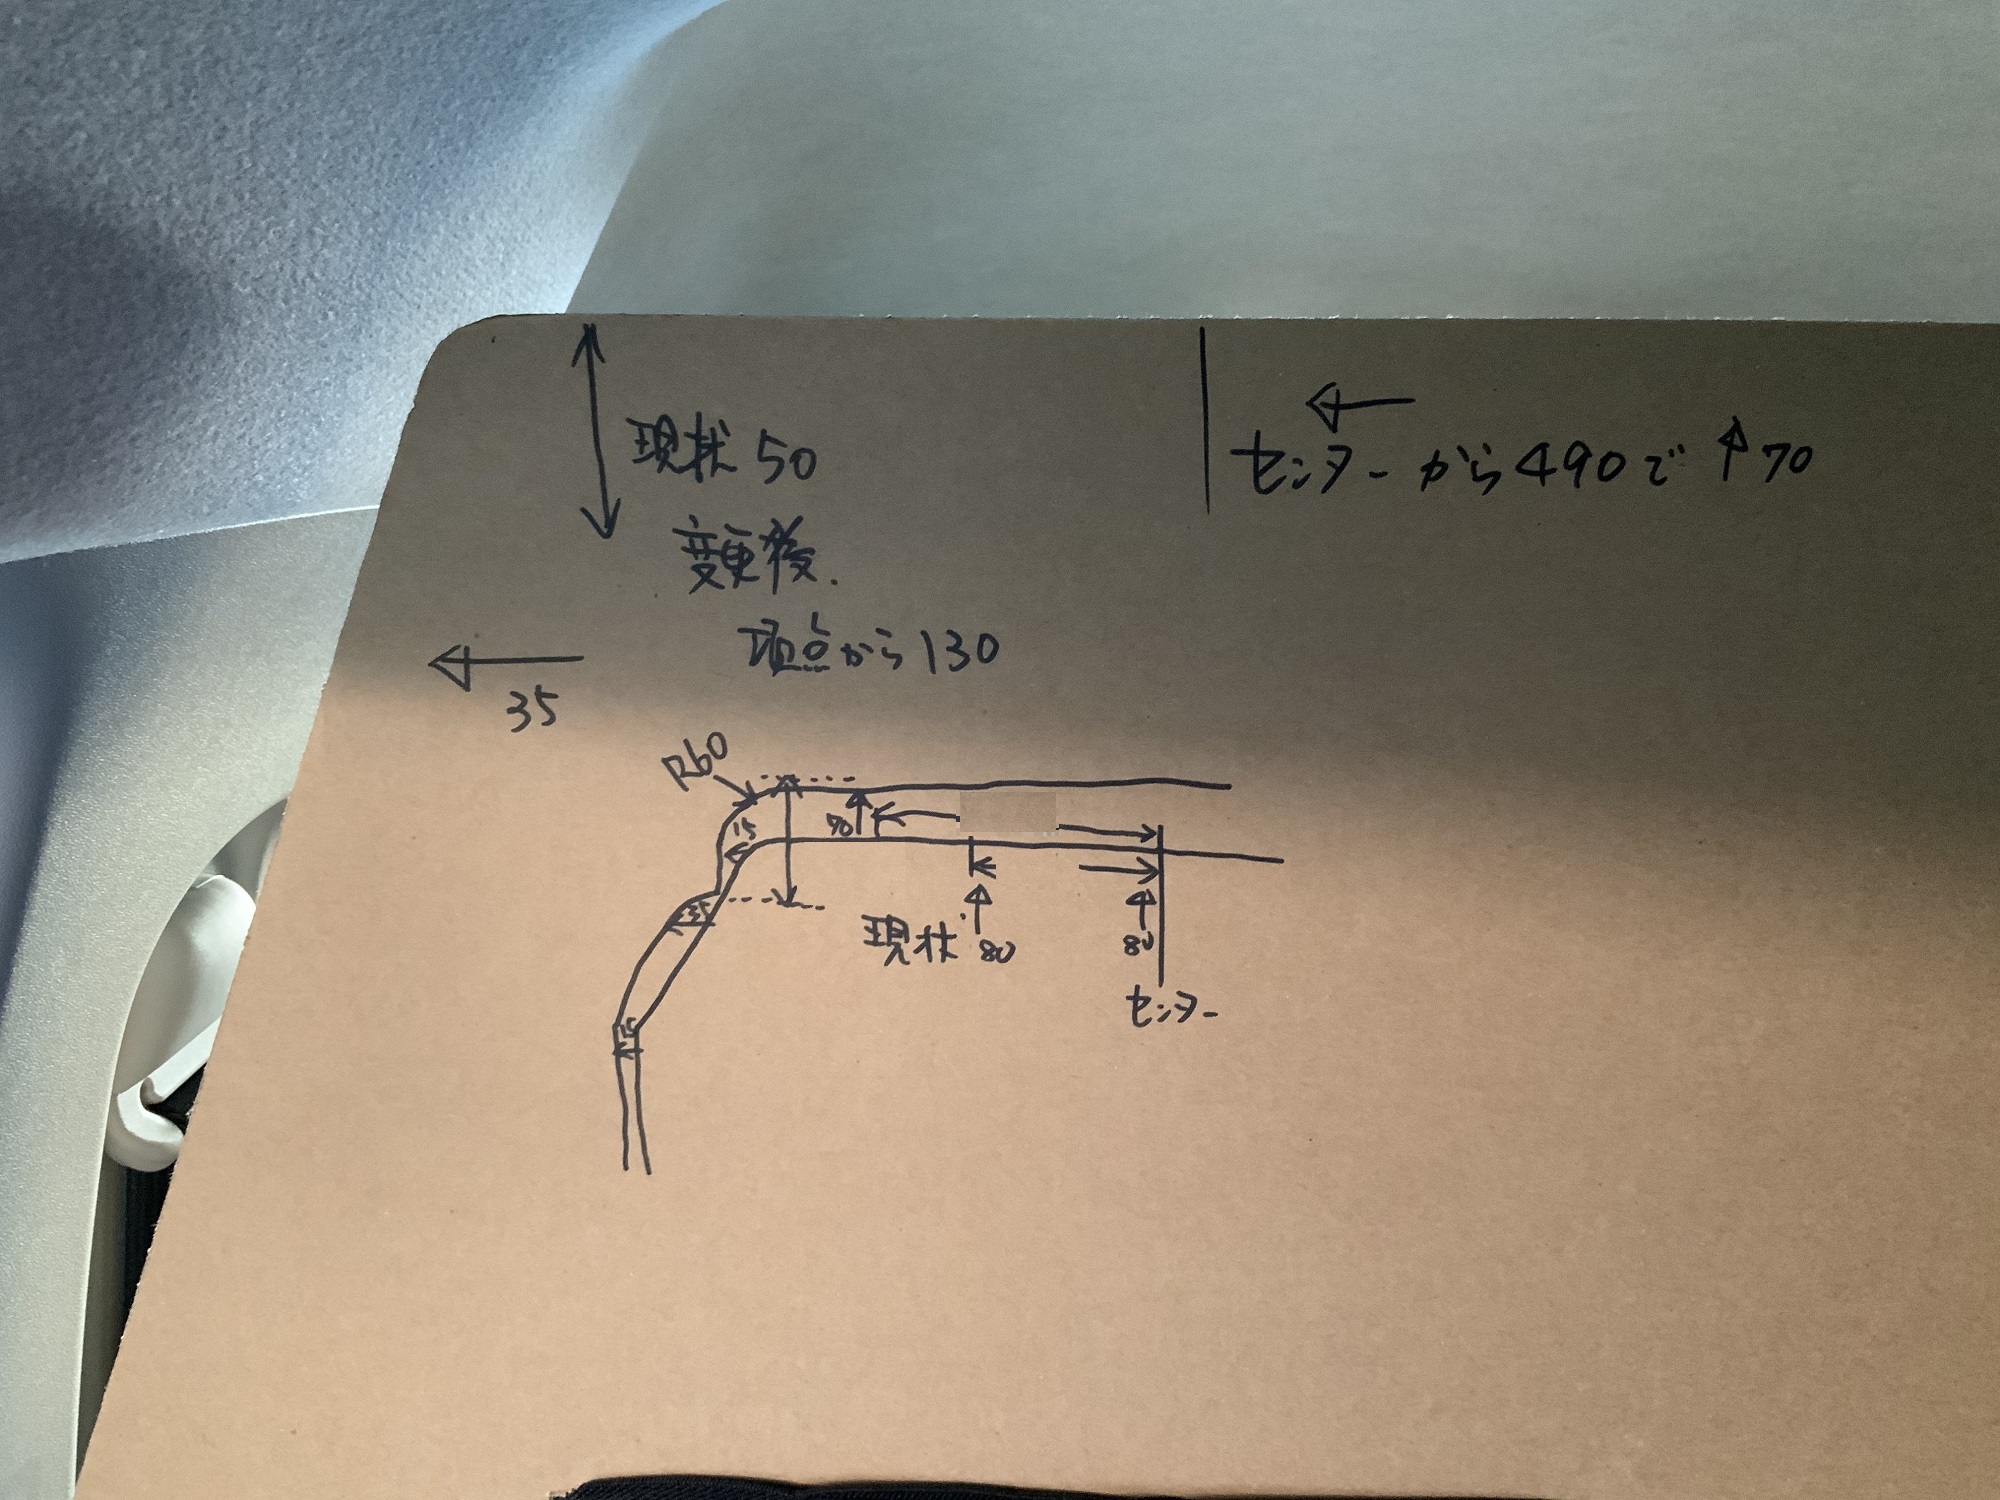 現状50
変更後.
頂点から130
センターから490で↑70
35
R60
15
70
35
現状 80
80
センター
15